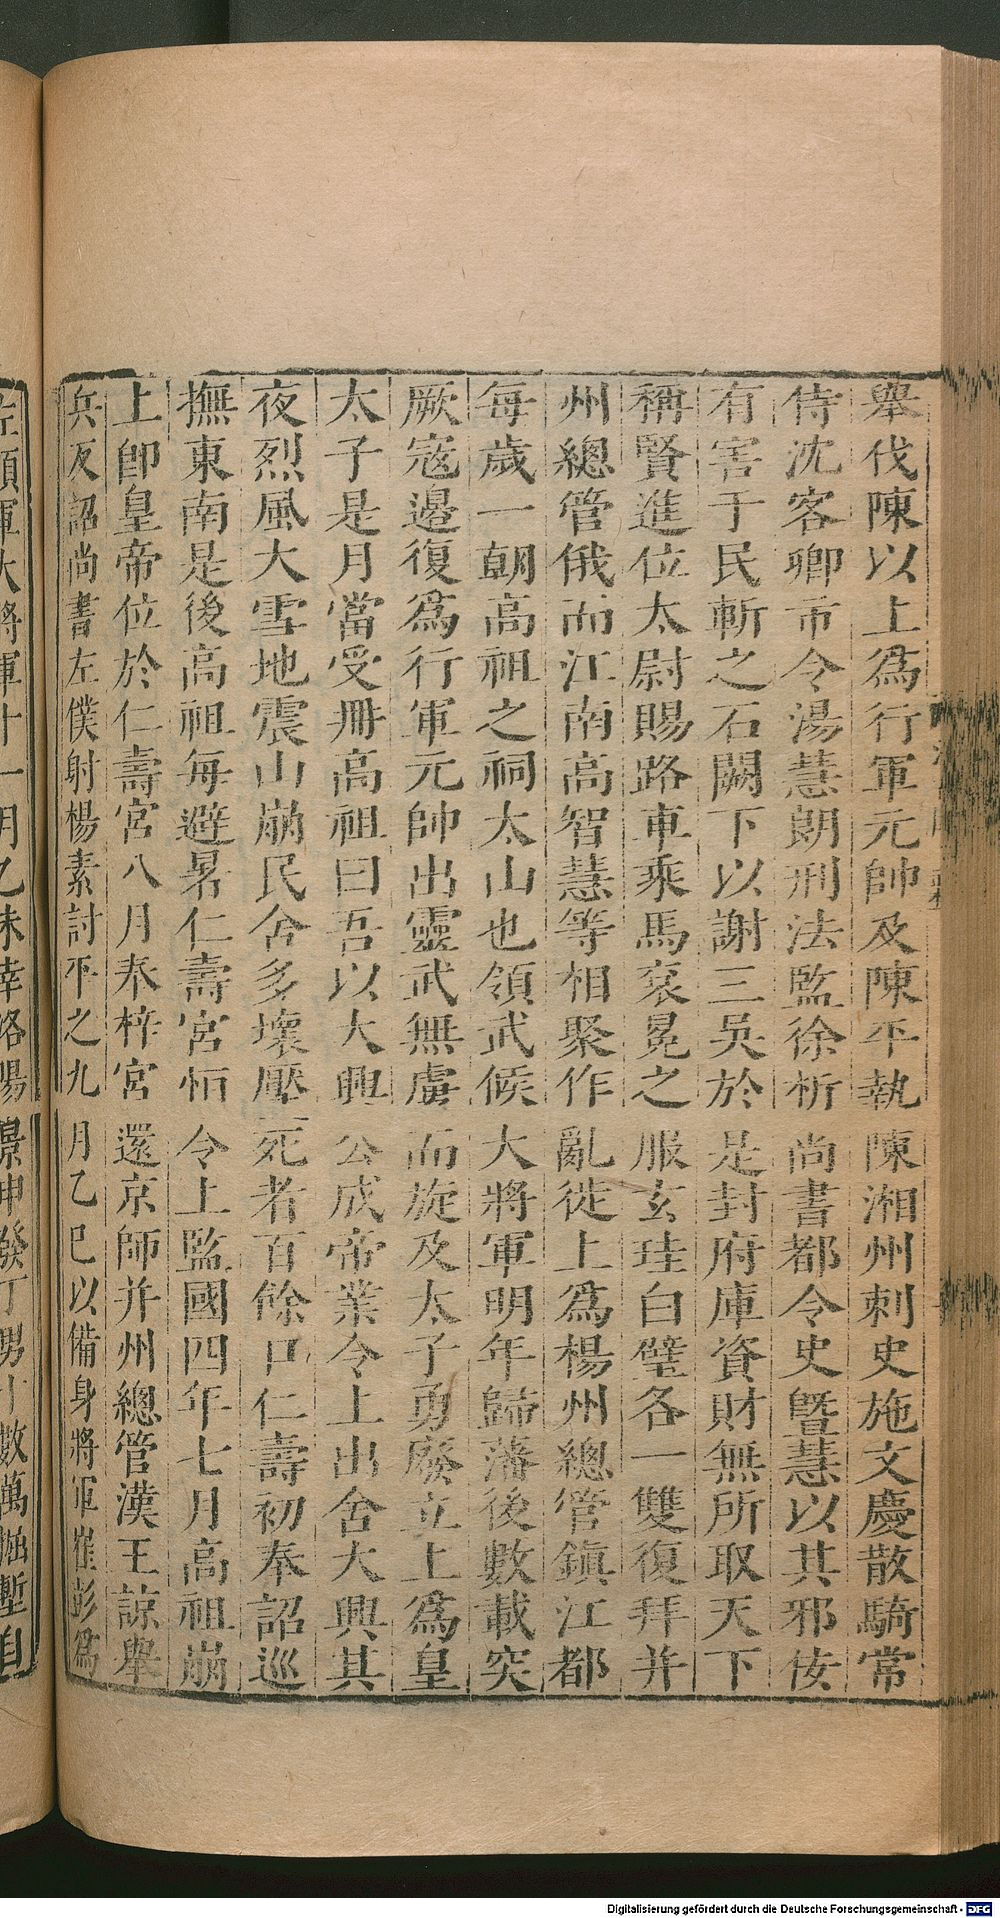 舉伐陳以上爲行軍元帥及陳平執陳湘州刺史施文慶散騎常
侍沈客卿市令湯慧朗刑法監徐析尚書都令史暨慧以其邪佞
有害于民斬之石闕下以謝三吳於是封府庫資財無所取天下
稱賢進位太尉賜路車乘馬袞冕之服玄珪白璧各一雙復拜并
州總管俄而江南高智慧等相聚作亂徙上爲楊州總管鎮江都
每歲一朝高祖之祠太山也領武候大將軍明年歸藩後數載突
厥寇邊復爲行軍元帥出靈武無虜而旋及太子勇廢立上爲皇
太子是月當受冊高祖曰吾以大興公成帝業令上出舍大興其
夜烈風大雪地震山崩民舍多壞壓死者百餘口仁壽初奉詔巡
撫東南是後高祖每避暑仁壽宮恒令上監國四年七月高祖崩
上卽皇帝位於仁壽宮八月奉梓宮還京師并州總管漢王諒舉
兵反詔尚書左僕射楊素討平之九月乙巳以備身將軍崔彭爲
左領軍大將軍十一月乙未幸洛陽景申發丁男十數萬掘塹自
Digitalisierung gefördert durch die Deutsche Forschungsgemeinschaft - DFG